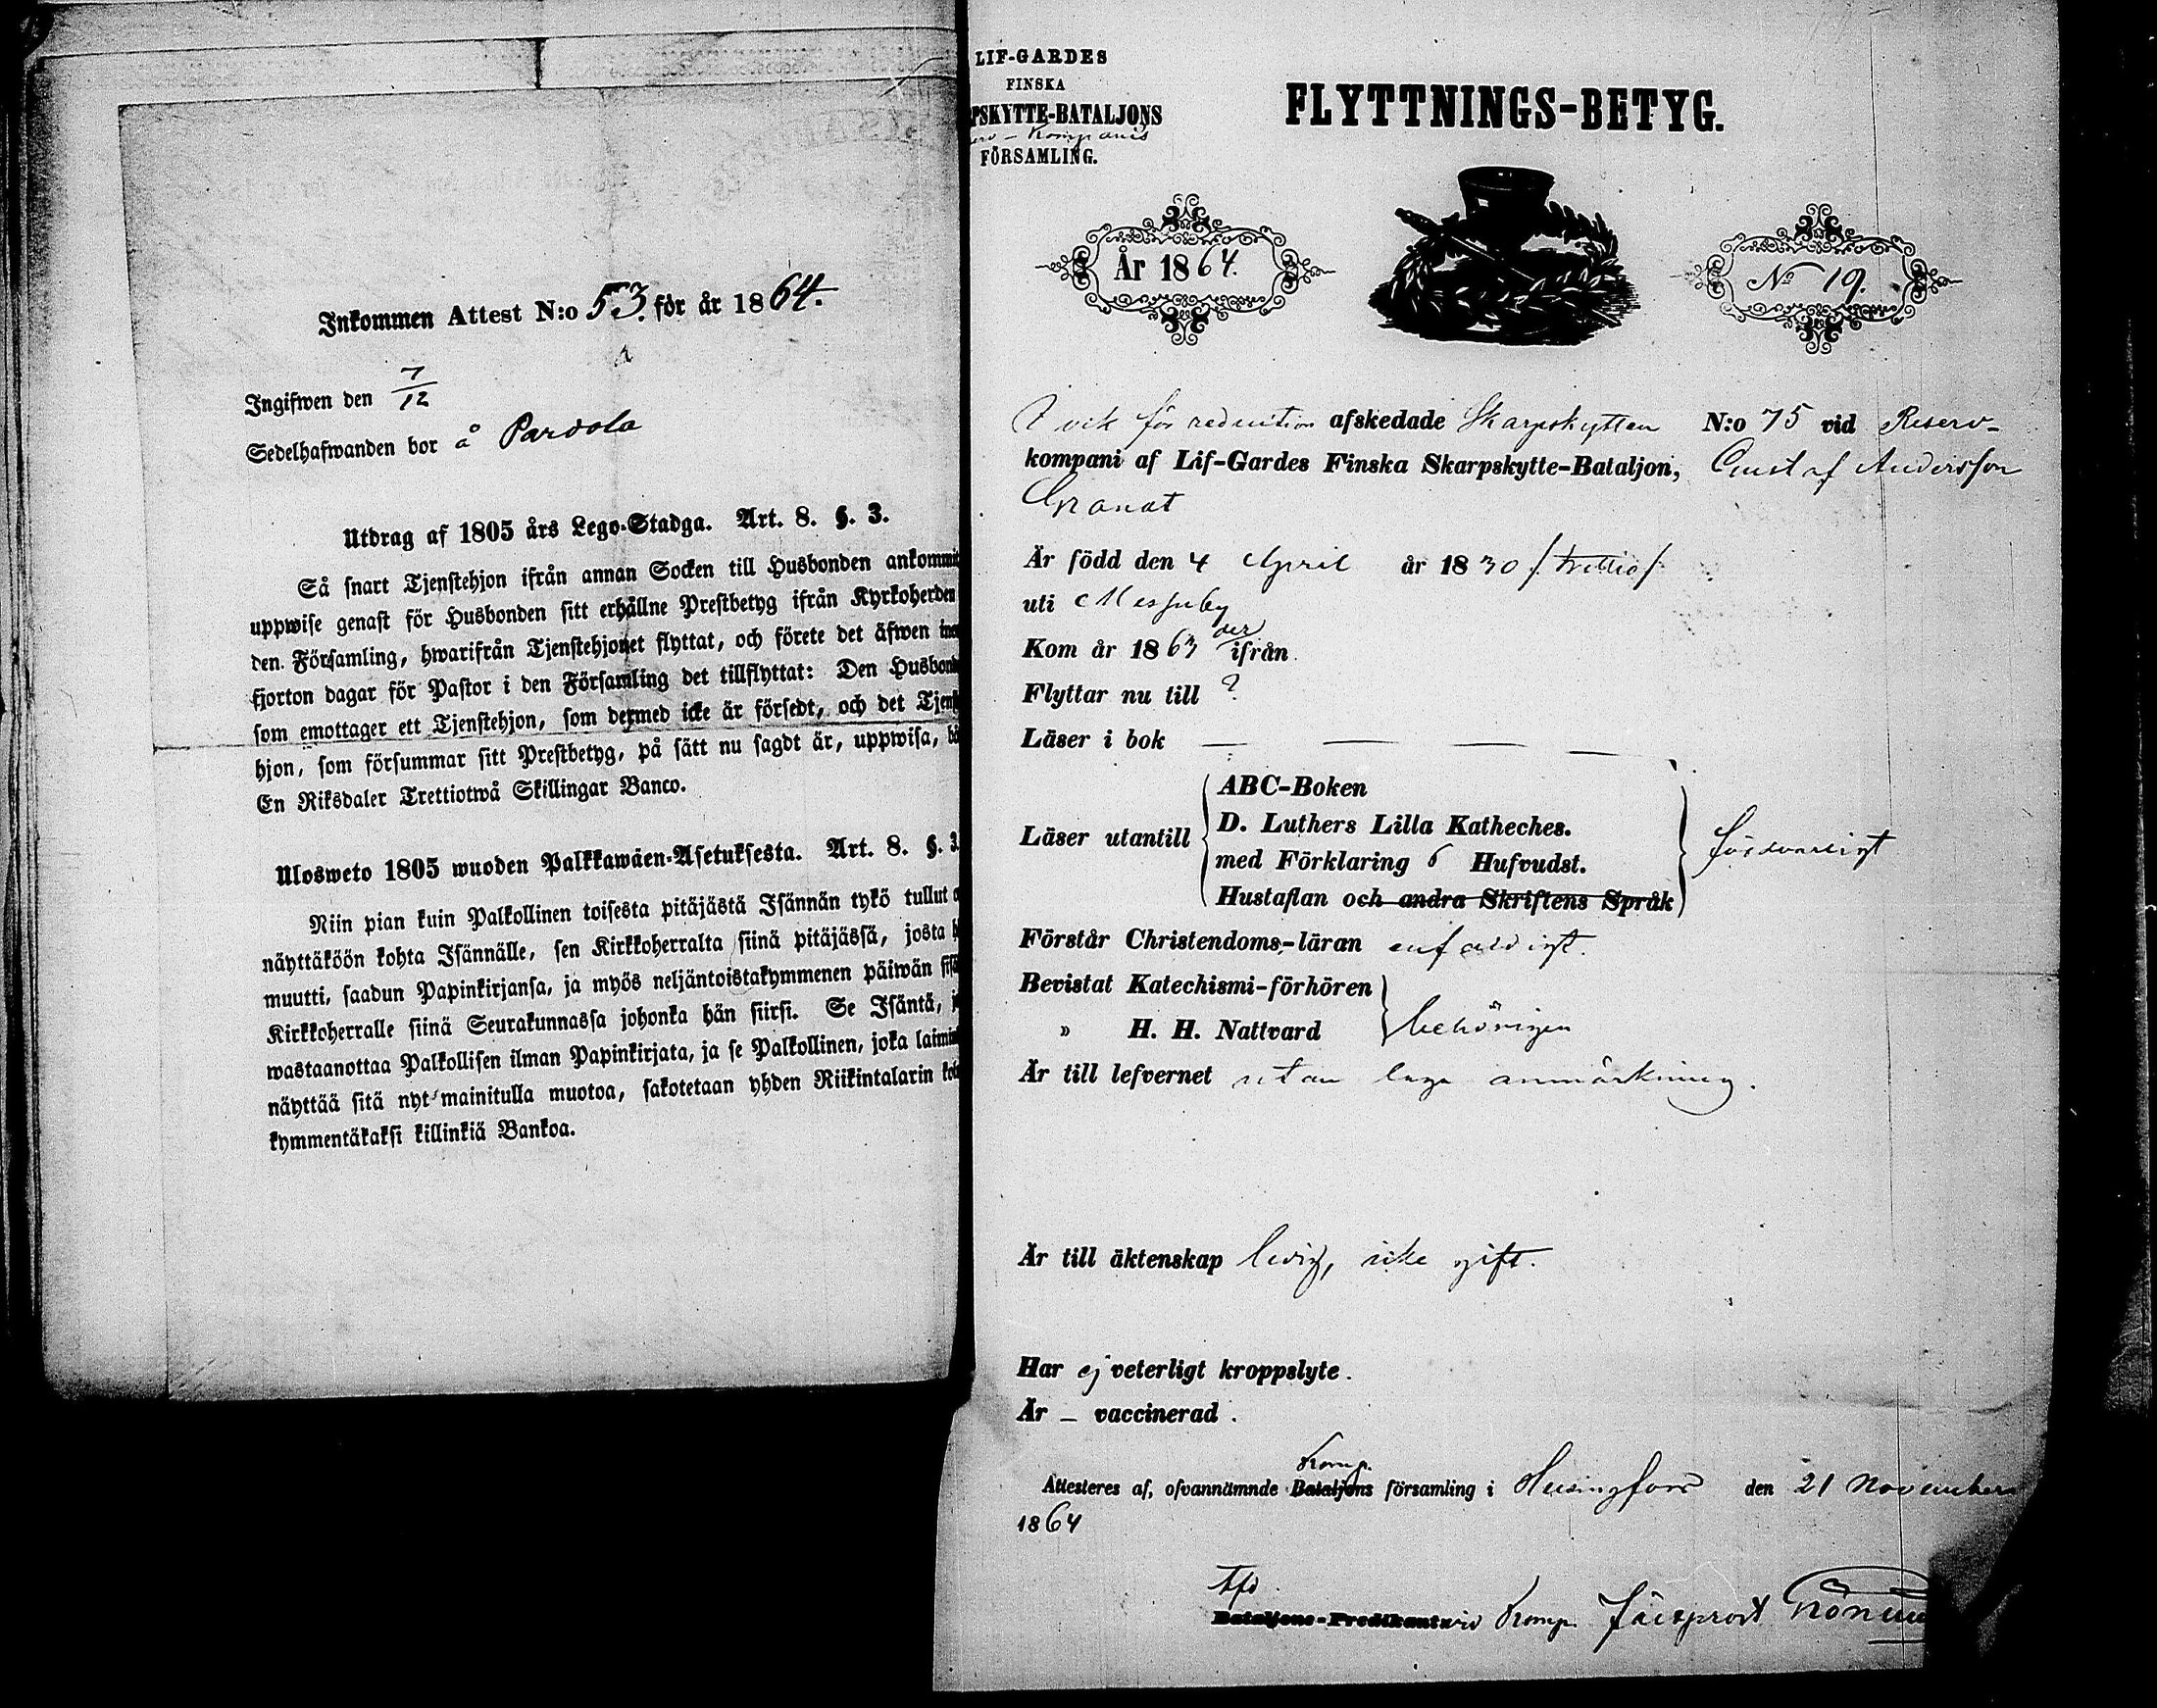 Inkommen Attest N:o 53. för år 1864.
Ingifwen den 7/12
Sedelhafwanden bor å Parola
Utdrag af 1805 års Lego-Stadga. Art. 8. §. 3.
Så snart Tjenstehjon ifrån annan Socken till Husbonden ankommit
uppwise genast för Husbonden sitt erhållne Prestbetyg ifrån Kyrkoherden
den Församling, hwarifrån Tjenstehjonet flyttat, och förete det äfwen
fjorton dagar för Pastor i den Församling det tillflyttat: Den Husbonde
som emottager ett Tjenstehjon, som dermed icke är försedt, och det
hjon, som försummar sitt Prestbetyg, på sätt nu sagdt är, uppwisa,
En Riksdaler Trettiotwå Skillingar Banco.
Ulosweto 1805 wuoden Palkkawäen-Asetuksesta. Art. 8. §. 3.
Niin pian kuin Palkollinen toisesta pitäjästä Isännän tykö tullut
näyttäköön kohta Isännälle, sen Kirkkoherralta siinä pitäjässä, josta
muutti, saadun Papinkirjansa, ja myös neljäntoistakymmenen päiwän
Kirkkoherralle siinä Seurakunnassa johonka hän siirsi. Se Isäntä,
wastaanottaa Palkollisen ilman Papinkirjata, ja se Palkollinen, joka
näyttää sitä nyt mainitulla muotoa, sakotetaan yhden Riikintalarin
kymmentäkaksi killinkiä Bankoa.
LIF-GARDES
FINSKA
PSKYTTE-BATALJONS
Kompanis
FÖRSAMLING.
FLYTTNINGS-BETYG.
År 1864.
No 19.
för reduction afskedade Skarpskytten N:o 75 vid Reserv-
kompani af Lif-Gardes Finska Skarpskytte-Bataljon, Gustaf Andersson
Granat
Är född den 4 April år 1830 /:trettio/:
uti Messuby
Kom år 1863 der ifrån
Flyttar nu till ?
Läser i bok — — — —
Läser utantill
ABC-Boken
D. Luthers Lilla Katheches.
med Förklaring 6 Hufvudst.
Hustaflan och andra Skriftens Språk
försvarligt
Förstår Christendoms-läran enfaldigt.
Bevistat Katechismi-förhören
» H. H. Nattvard
behörigen
Är till lefvernet utan laga anmärkning.
Är till äktenskap ledig, icke gift.
Har ej veterligt kroppslyte.
Är — vaccinerad.
Komp.
Attesteres af, ofvannämnde Bataljons församling i Helsingfors den 21 November
1864
Bataljons-Predikant vid Komp.